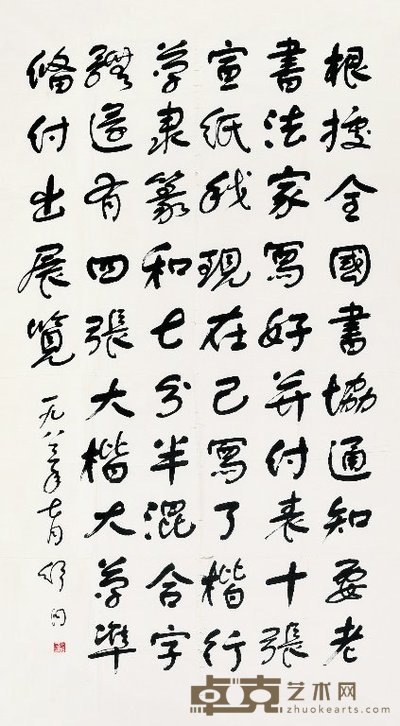 根據全國書協通知要老
書法家寫好并付表十張
宣紙我現在已寫了楷行
草隶篆和七分半混合字
體還有四張大楷大草準
俻付出展覽
一九八三年七月舒同
卓克艺术网
zhuokearts.com